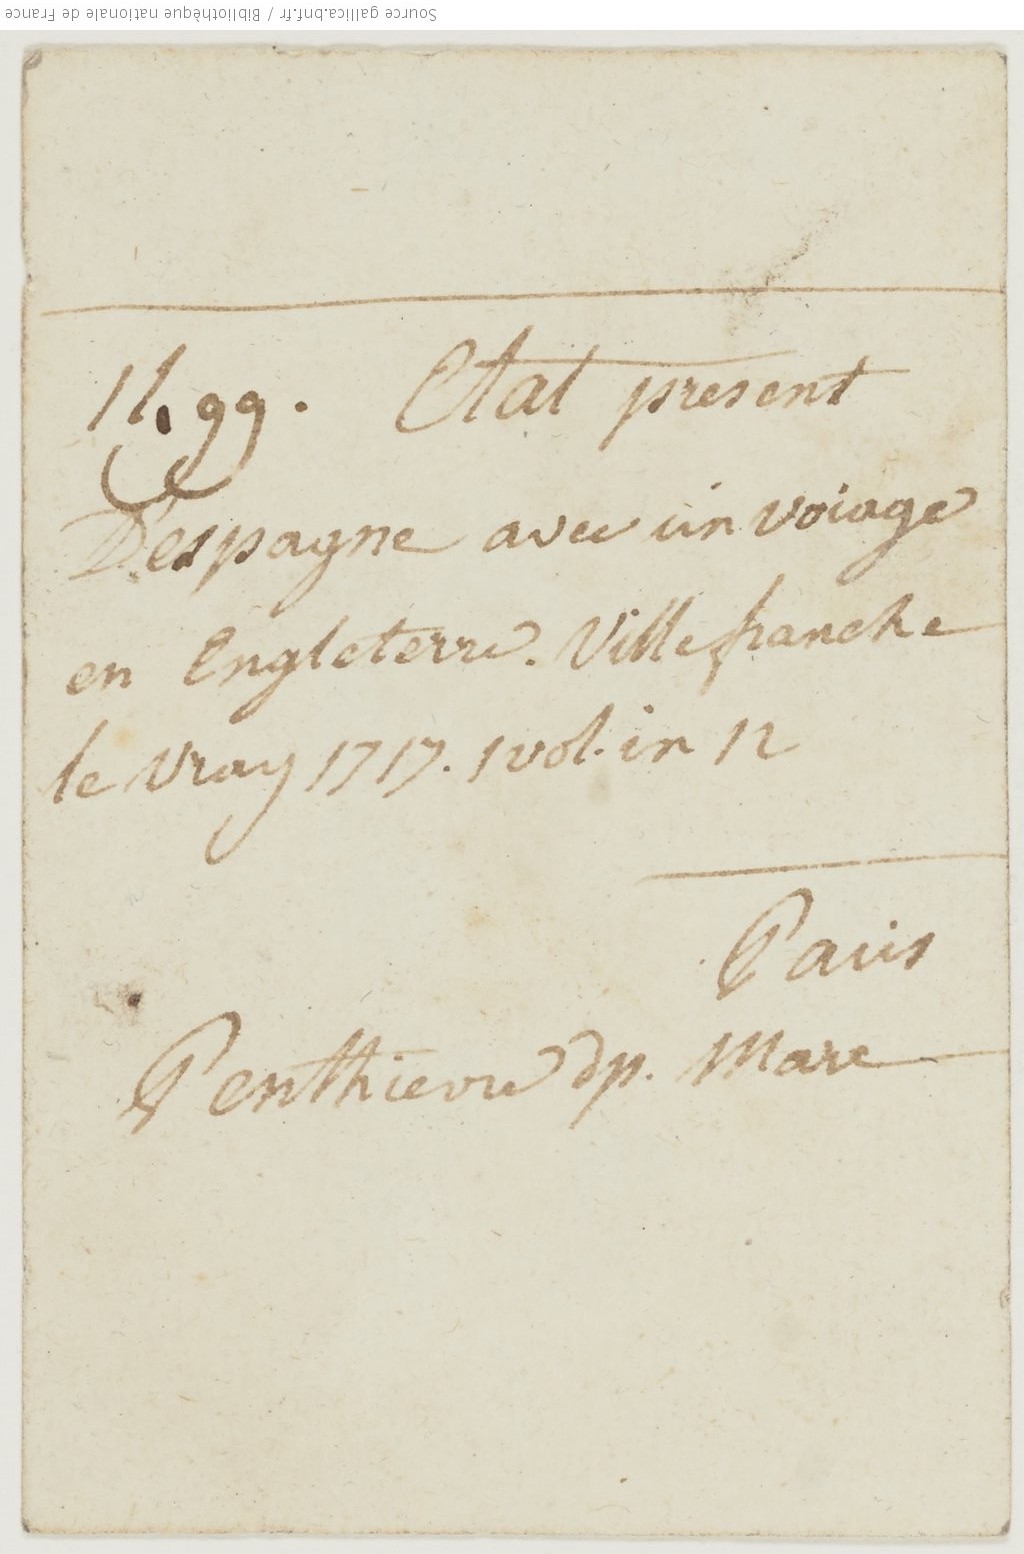 Source gallica.bnf.fr / Bibliothèque nationale de France
11,99. Etat present
D'espagne avec un voiage
en Engleterre. Villefranche
le Vray 1717. 1 vol. in 12
Paris
Penthievre dp. Mare